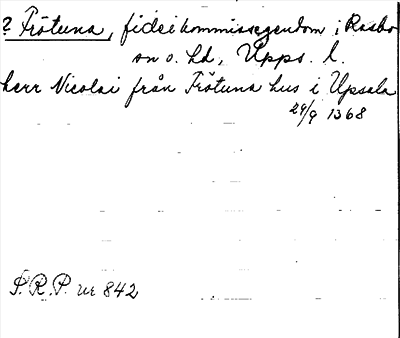 ? Frötuna, fideikommissegendom i Rasbo
sn o. hd, Upps. l.
herr Nicolai från Frötuna hus i Upsala
29/9 1368
S.R.P. nr 842